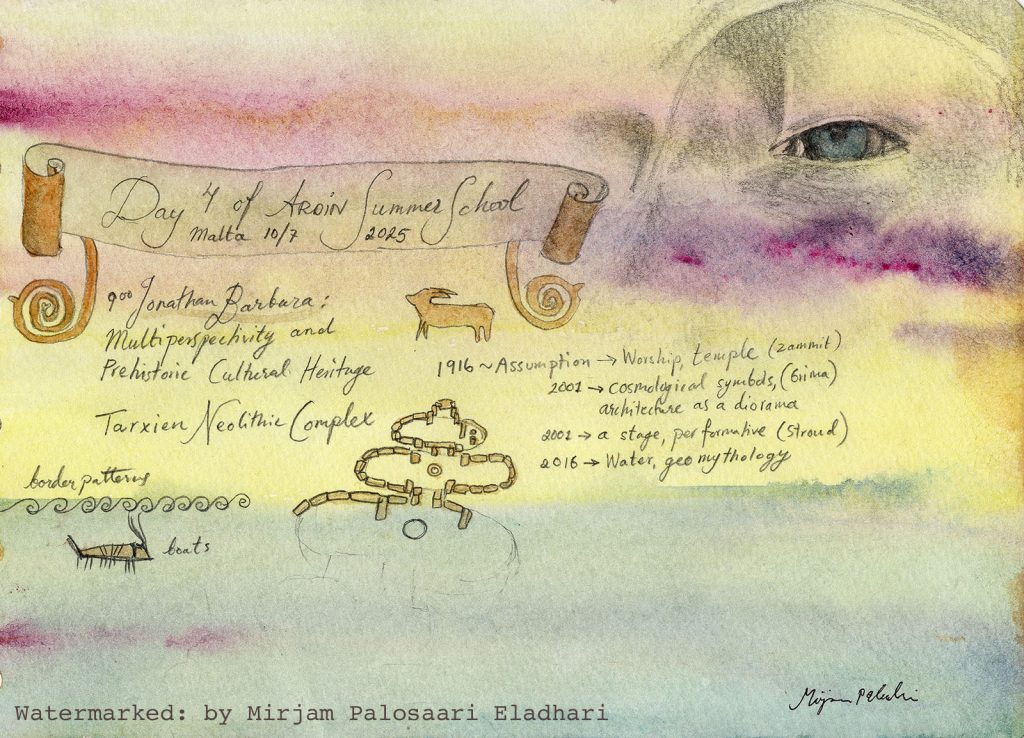 Day 4 of ARDIN Summer School
Malta 10/7 2025
9⁰⁰ Jonathan Barbara:
Multiperspectivity and
Prehistoric Cultural Heritage
1916 ~ Assumption → Worship, temple (Zammit)
2001 → cosmological symbols, (Grima)
architecture as a diorama
Tarxien Neolithic Complex
2001 → a stage, performative (Stroud)
2016 → Water, geomythology
border patterns
boats
Watermarked: by Mirjam Palosaari Eladhari